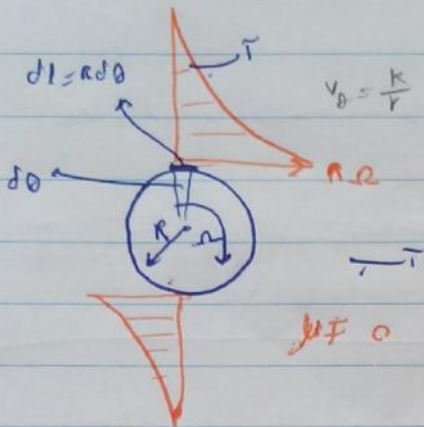 dl = Rdθ
T
V_θ = K/r
dθ
RΩ
R
Ω
T
μ ≠ 0